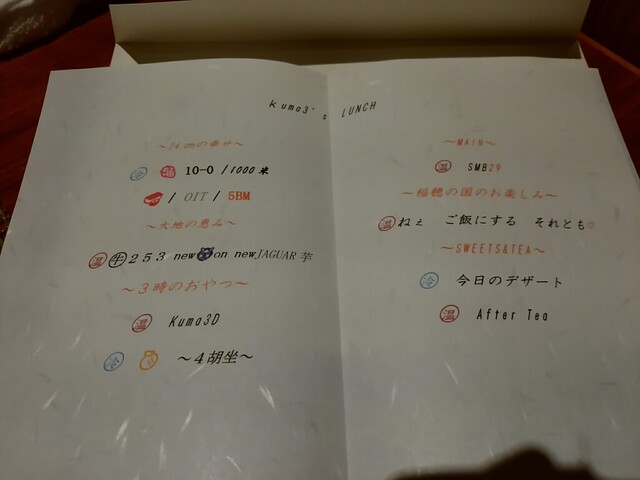 kuma3's LUNCH
冷 温 10-0 / 1000 味
/ OIT / 5BM
～大地の恵み～
温 牛 253 new on new JAGUAR 芋
～3時のおやつ～
温 Kuma3D
冷 ～4胡坐～
～MAIN～
温 SMB29
～稲穂の国のお楽しみ～
温 ねぇ ご飯にする それとも♡
～SWEETS&TEA～
冷 今日のデザート
温 After Tea